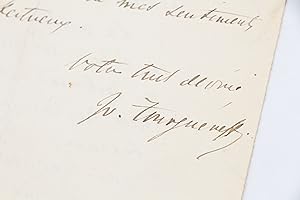 mes sentiments
votre tout dévoué
Iv. Tourguéneff.